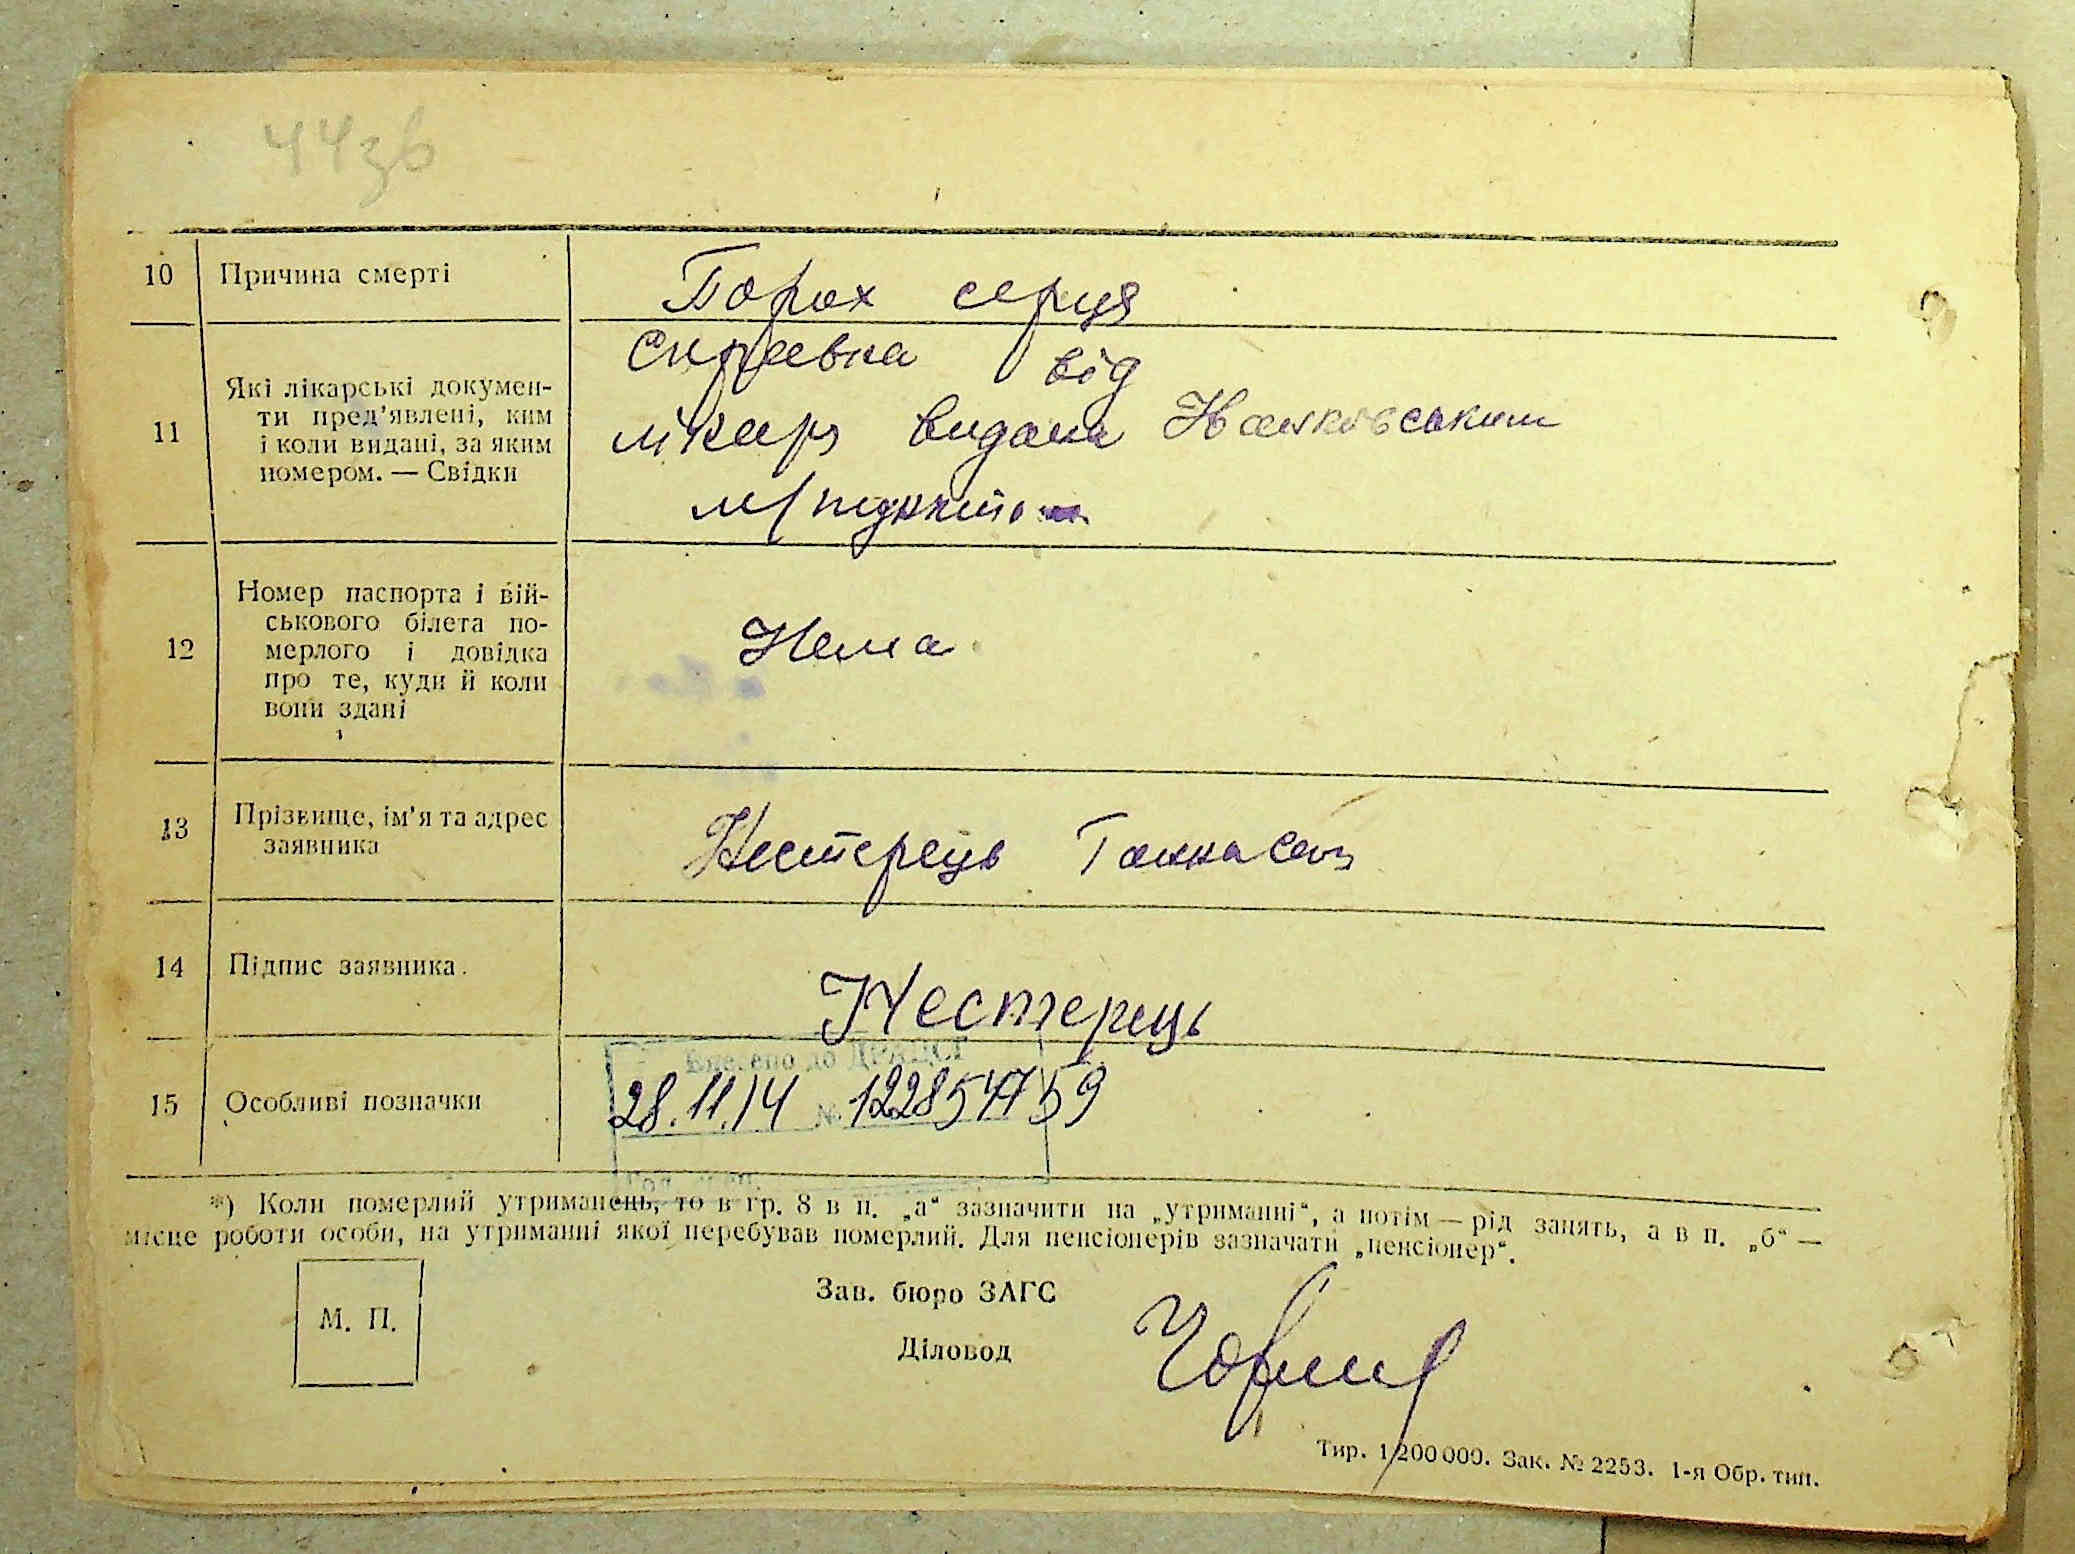 44зв
10 Причина смерті
Порок серця
11 Які лікарські докумен-
ти пред'явлені, ким
і коли видані, за яким
номером. — Свідки
Справка від
лікаря видана
м/пунктом
12 Номер паспорта і вій-
ськового білета по-
мерлого і довідка
про те, куди й коли
вони здані
Нема
13 Прізвище, ім'я та адрес
заявника
Нестерець Ганна
14 Підпис заявника.
Нестерець
15 Особливі позначки
Внесено до ДРАЦСГ
28.11.14 №
*) Коли померлий утриманець, то в гр. 8 в п. „а“ зазначити на „утриманні“, а потім — рід занять, а в п. „б“ —
місце роботи особи, на утриманні якої перебував померлий. Для пенсіонерів зазначати „пенсіонер“.
М. П.
Зав. бюро ЗАГС
Діловод
Тир. 1/200000. Зак. № 2253. 1-я Обр. тип.